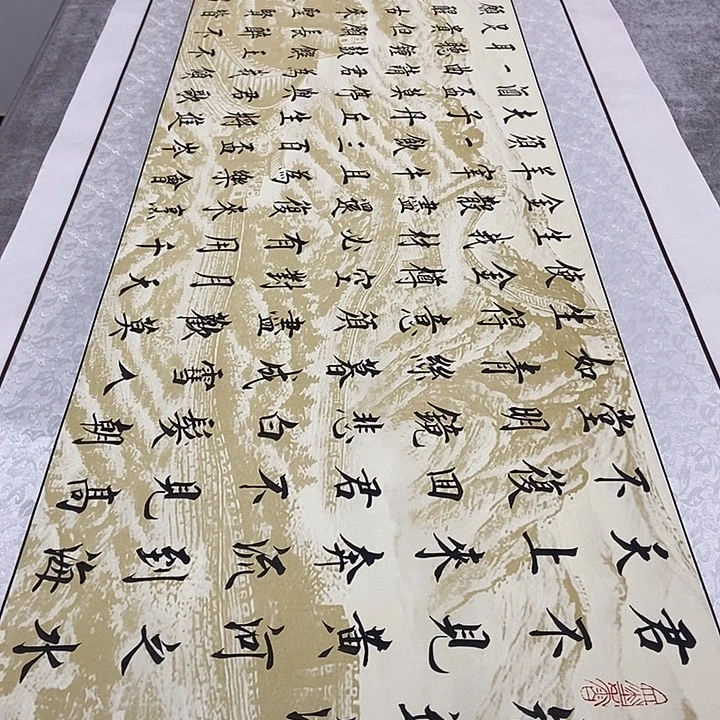 君不見黃河之水
天上來奔流到海
不復回君不見高
堂明鏡悲白髮朝
如青絲暮成雪人
生得意須盡歡莫
使金樽空對月天
生我材必有用千
金散盡還復來烹
羊宰牛且為樂會
須一飲三百盃岑
夫子丹丘生將進
酒盃莫停與君歌
一曲請君為我傾
耳聽鐘鼓饌玉不
足貴但願長醉不
願醒古來聖賢皆